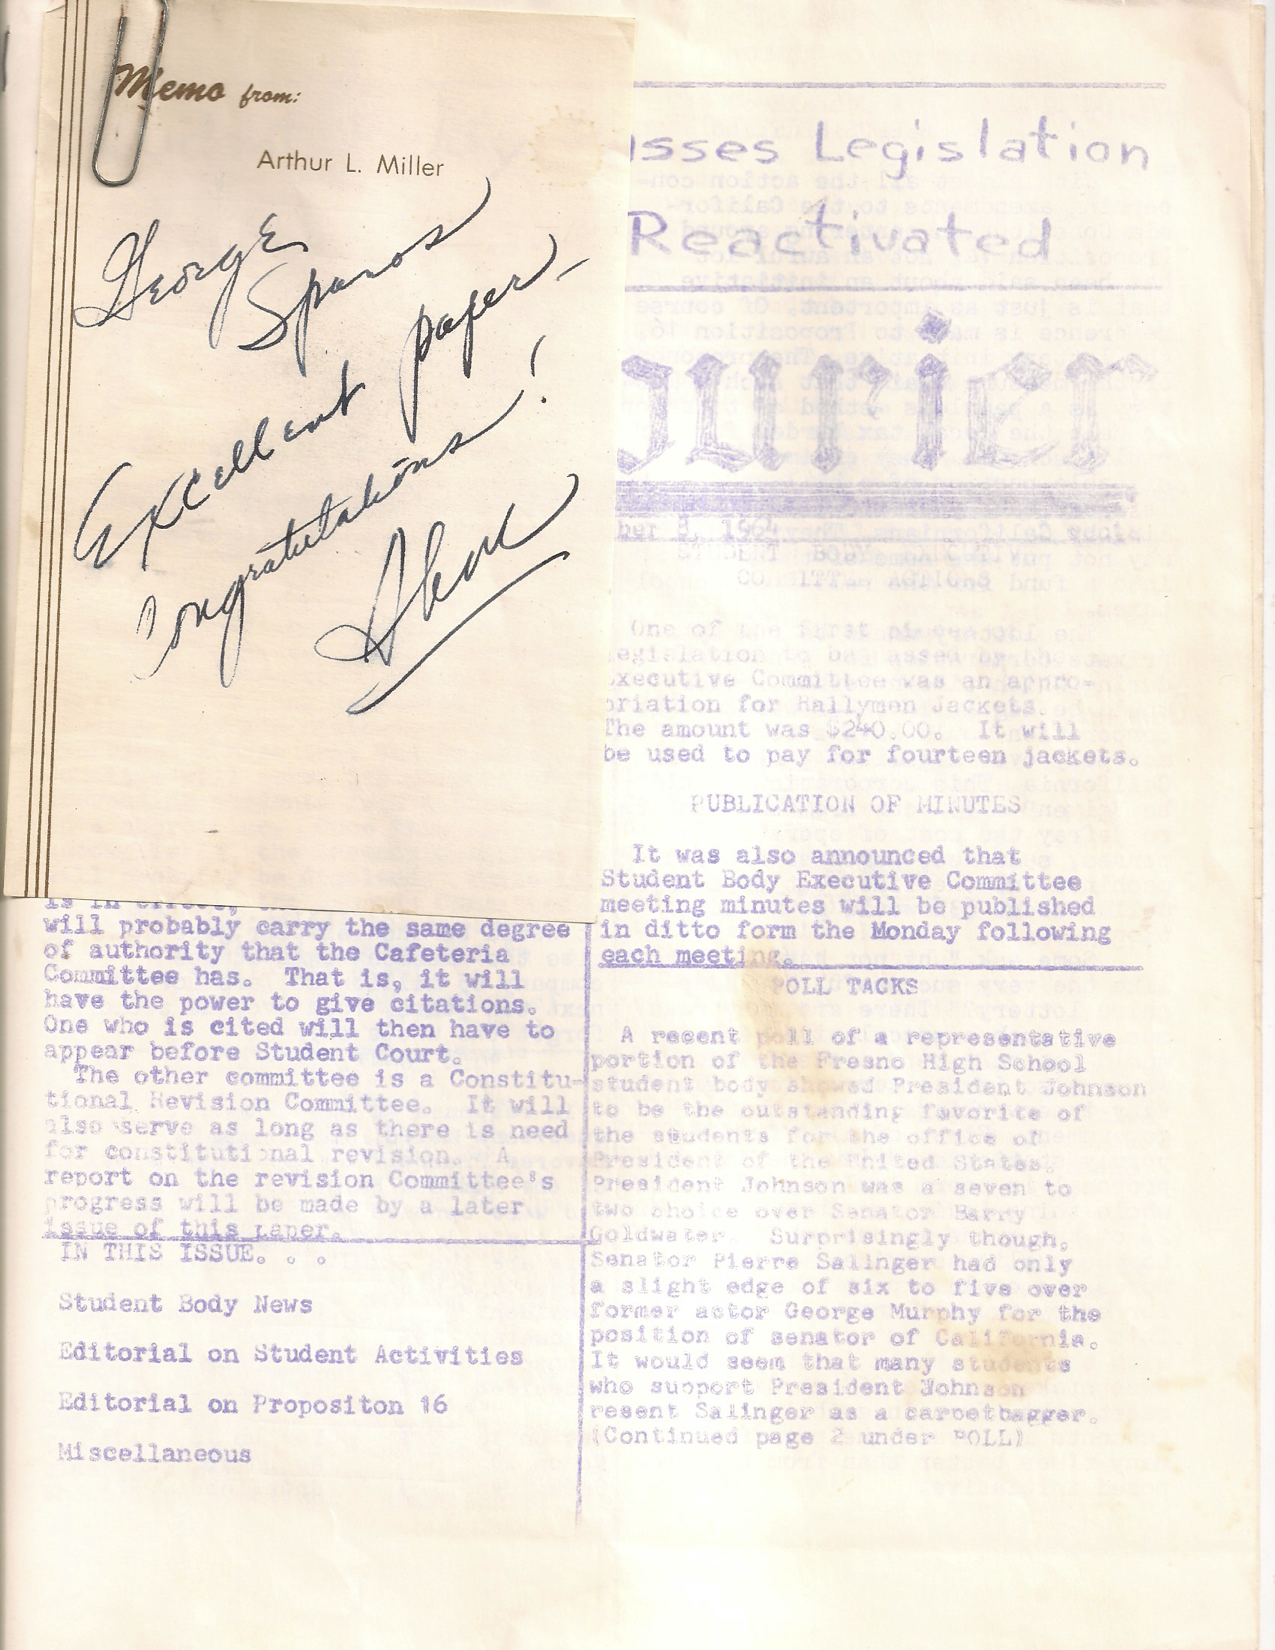 Memo from:
Arthur L. Miller
George
Spanos
Excellent paper-
Congratulations!
asses Legislation
Reactivated
urier
ber 3, 1964
STUDENT BODY
COMMITTEE
One of the first
legislation to be passed by
Executive Committee was an appro-
priation for Rallymen Jackets.
The amount was $240.00. It will
be used to pay for fourteen jackets.
PUBLICATION OF MINUTES
It was also announced that
Student Body Executive Committee
meeting minutes will be published
in ditto form the Monday following
each meeting.
is in effect,
will probably carry the same degree
of authority that the Cafeteria
Committee has. That is, it will
have the power to give citations.
One who is cited will then have to
appear before Student Court.
The other committee is a Constitu-
tional Revision Committee. It will
also serve as long as there is need
for constitutional revision. A
report on the revision Committee's
progress will be made by a later
issue of this paper.
IN THIS ISSUE. . .
Student Body News
Editorial on Student Activities
Editorial on Propositon 16
Miscellaneous
POLL TACKS
A recent poll of a representative
portion of the Fresno High School
student body showed President Johnson
to be the outstanding favorite of
the students for the office of
President of the United States.
President Johnson was a seven to
two choice over Senator Barry
Goldwater. Surprisingly though,
Senator Pierre Salinger had only
a slight edge of six to five over
former actor George Murphy for the
position of senator of California.
It would seem that many students
who support President Johnson
resent Salinger as a carpetbagger.
(Continued page 2 under POLL)